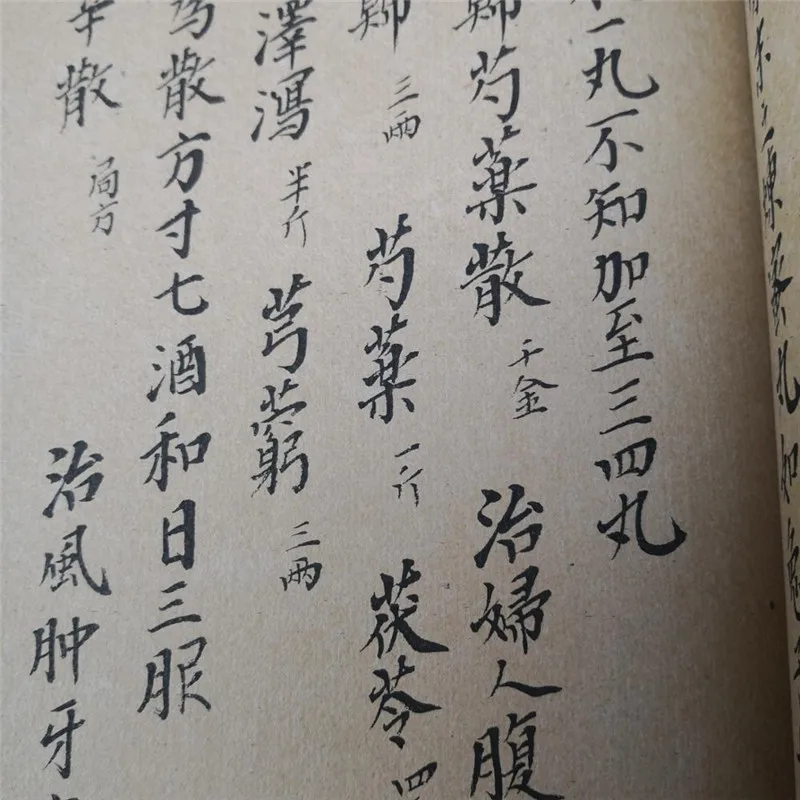 一丸不知加至三四丸
歸芍藥散 千金 治婦人腹
歸 三兩 芍藥 一斤 茯苓 四
澤瀉 半斤 芎藭 三兩
為散方寸七酒和日三服
辛散 局方 治風肿牙